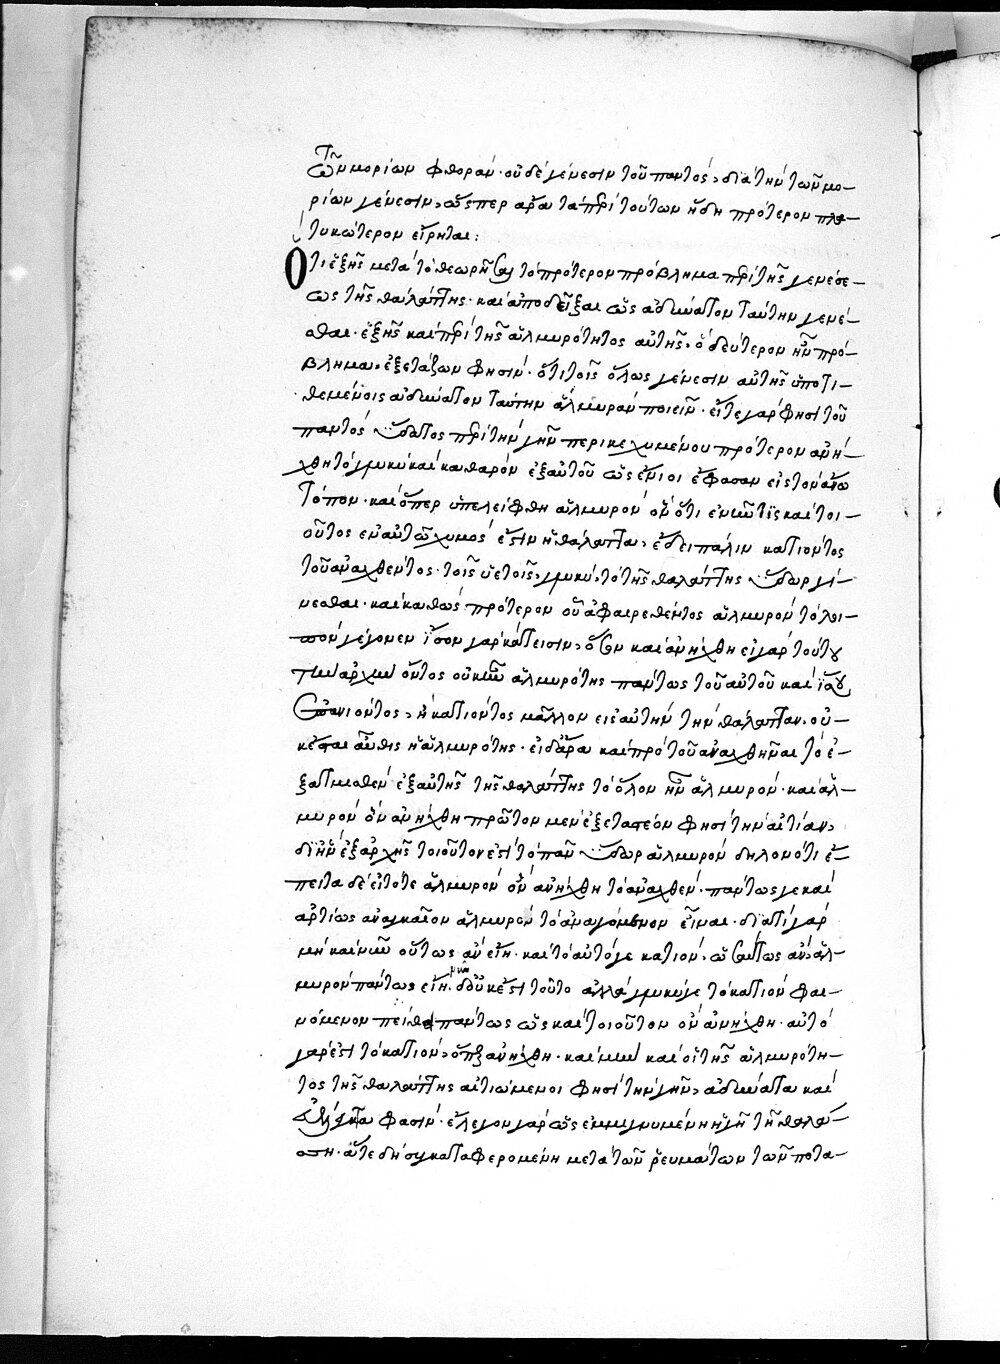 τῶν μορίων φθοράν· οὐδὲ γένεσιν τοῦ παντός, διὰ τὴν τῶν μο-
ρίων γένεσιν, ὥσπερ ἄρα τὰ περὶ τούτων ἤδη πρότερον πλα-
τυκώτερον εἴρηται:
Ὅτι ἑξῆς μετὰ τὸ θεωρῆσαι τὸ πρότερον πρόβλημα περὶ τῆς γενέσε-
ως τῆς θαλάττης· καὶ ἀποδεῖξαι ὡς ἀδύνατον ταύτην γενέ-
σθαι· ἑξῆς καὶ περὶ τῆς ἁλμυρότητος αὐτῆς, ὃ δεύτερον ἦν πρό-
βλημα, ἐξετάζων φησίν· ὅτι τοῖς ὅλως γένεσιν αὐτῆς ὑποτι-
θεμένοις ἀδύνατον ταύτην ἁλμυρὰν ποιεῖν· εἴτε γάρ φησι τοῦ
παντὸς ὕδατος περὶ τὴν γῆν περικεχυμένου πρότερον ἀνή-
χθη τὸ γλυκὺ καὶ καθαρὸν ἐξ αὐτοῦ ὡς ἔνιοι ἔφασαν εἰς τὸν ἄνω
τόπον· καὶ ὅπερ ὑπελείφθη ἁλμυρὸν ὂν ὅτι ἐν τῆς καὶ τοι-
οῦτος ἐν αὐτῷ χυμός ἐστιν ἡ θάλαττα, ἔδει πάλιν κατιόντος
τοῦ ἀναχθέντος· τοῖς ὑετοῖς, γλυκὺ τὸ τῆς θαλάττης ὕδωρ γί-
νεσθαι· καὶ καθὼς πρότερον οὗ ἀφαιρεθέντος ἁλμυρὸν τὸ λοι-
πὸν γέγονεν ἴσον γὰρ κάτεισιν, ὅσον καὶ ἀνήχθη εἰ γὰρ τούτου
τὴν ἀρχὴν ὄντος οὐκ ἦν ἁλμυρότης πάντως τοῦ αὐτοῦ καὶ ἴσου
κατιόντος μᾶλλον εἰς αὐτὴν τὴν θάλατταν, οὐ-
κ ἔσται αὖθις ἡ ἁλμυρότης· εἰ δ' ἄρα καὶ πρὸ τοῦ ἀναχθῆναι τὸ ἐ-
ξατμισθὲν ἐξ αὐτῆς τῆς θαλάττης τὸ ὅλον ἦν ἁλμυρόν· καὶ ἁλ-
μυρὸν ὂν ἀνήχθη πρῶτον μὲν ἐξεταστέον φησὶ τὴν αἰτίαν,
δι' ἣν ἐξ ἀρχῆς τοιοῦτόν ἐστι τὸ πᾶν ὕδωρ ἁλμυρὸν δηλονότι ἔ-
πειτα δὲ εἰ τότε ἁλμυρὸν ὂν ἀνήχθη τὸ ἀναχθέν· πάντως γε καὶ
ἀρτίως ἀναγκαῖον ἁλμυρὸν τὸ ἀναγόμενον εἶναι· διατί γὰρ
μὴ καὶ νῦν οὕτως ἂν εἴη· καὶ τὸ αὐτό γε κατιόν, ὡσαύτως ἂν ἁλ-
μυρὸν πάντως εἴη· νῦν δ' οὐκ ἔστι τοῦτο ἀλλὰ γλυκύ γε τὸ κατιὸν φαι-
νόμενον πάντως ὡς καὶ τοιοῦτον ὂν ἀνήχθη· αὐτὸ
γάρ ἐστι τὸ κατιόν, ὅπερ ἀνήχθη· καὶ μὴν καὶ οἱ τῆς ἁλμυρότη-
τος τῆς θαλάττης αἰτιώμενοι φησὶ τὴν γῆν, ἀδύνατα καὶ
φασίν· ἔλεγον γὰρ ὡς ἐμμιγνυμένη ἡ γῆ τῇ θαλάσ-
ση· ἅτε δὴ συγκαταφερομένη μετὰ τῶν ῥευμάτων τῶν ποτα-